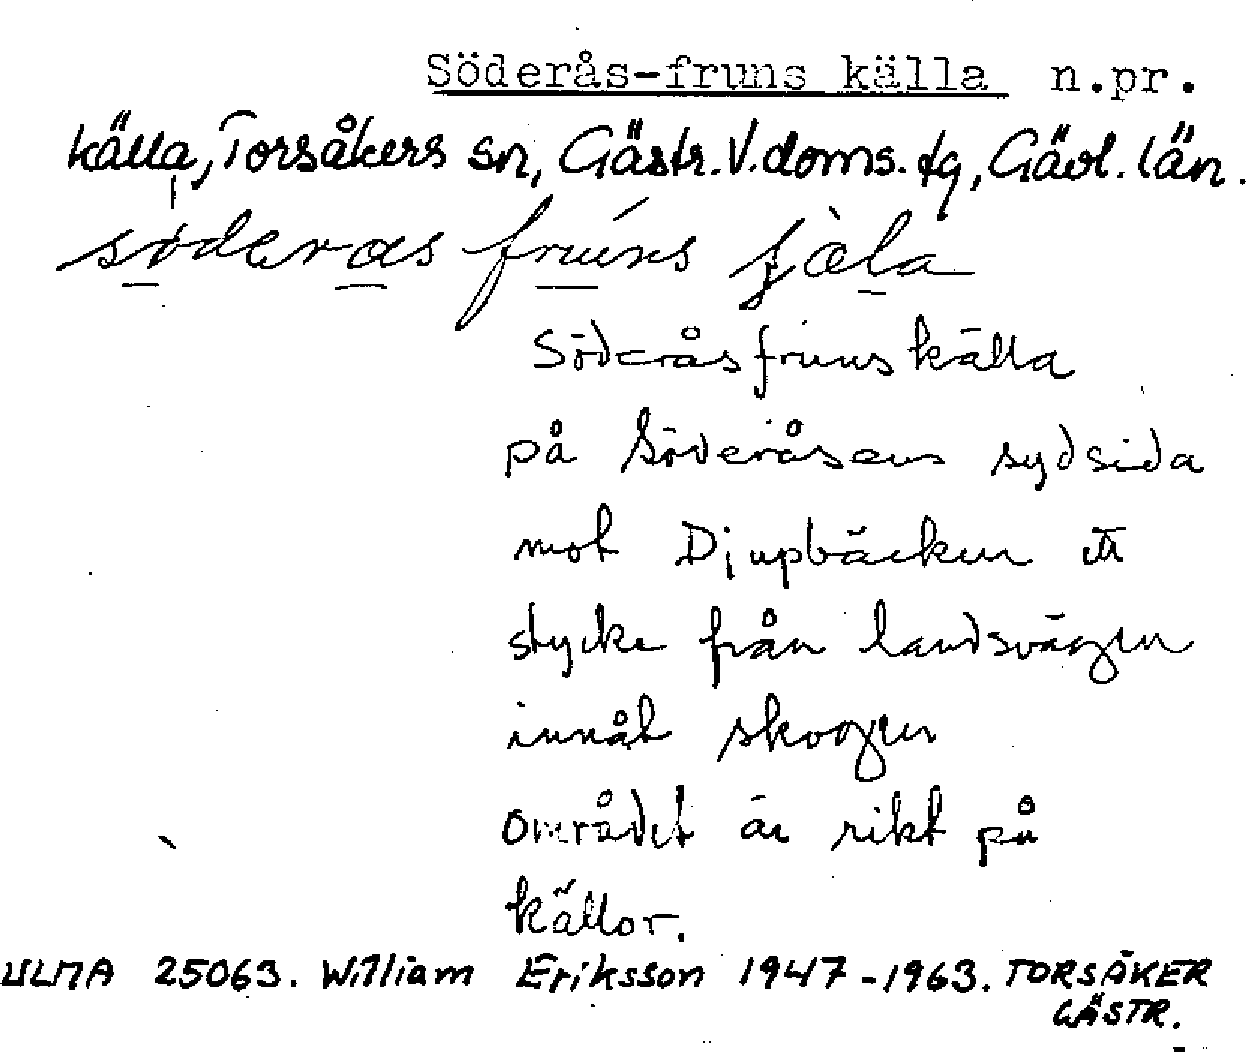 Söderås-fruns källa n.pr.
källa, Torsåkers sn, Gästr. V. doms. tg, Gävl. län.
söderas fruns fjäla
Söderåsfruns källa
på Söderåsens sydsida
mot Djupbäcken ett
stycke från landsvägen
innåt skogen
området är rikt på
källor.
ULMA 25063. William Eriksson 1947-1963. TORSÅKER
GÄSTR.